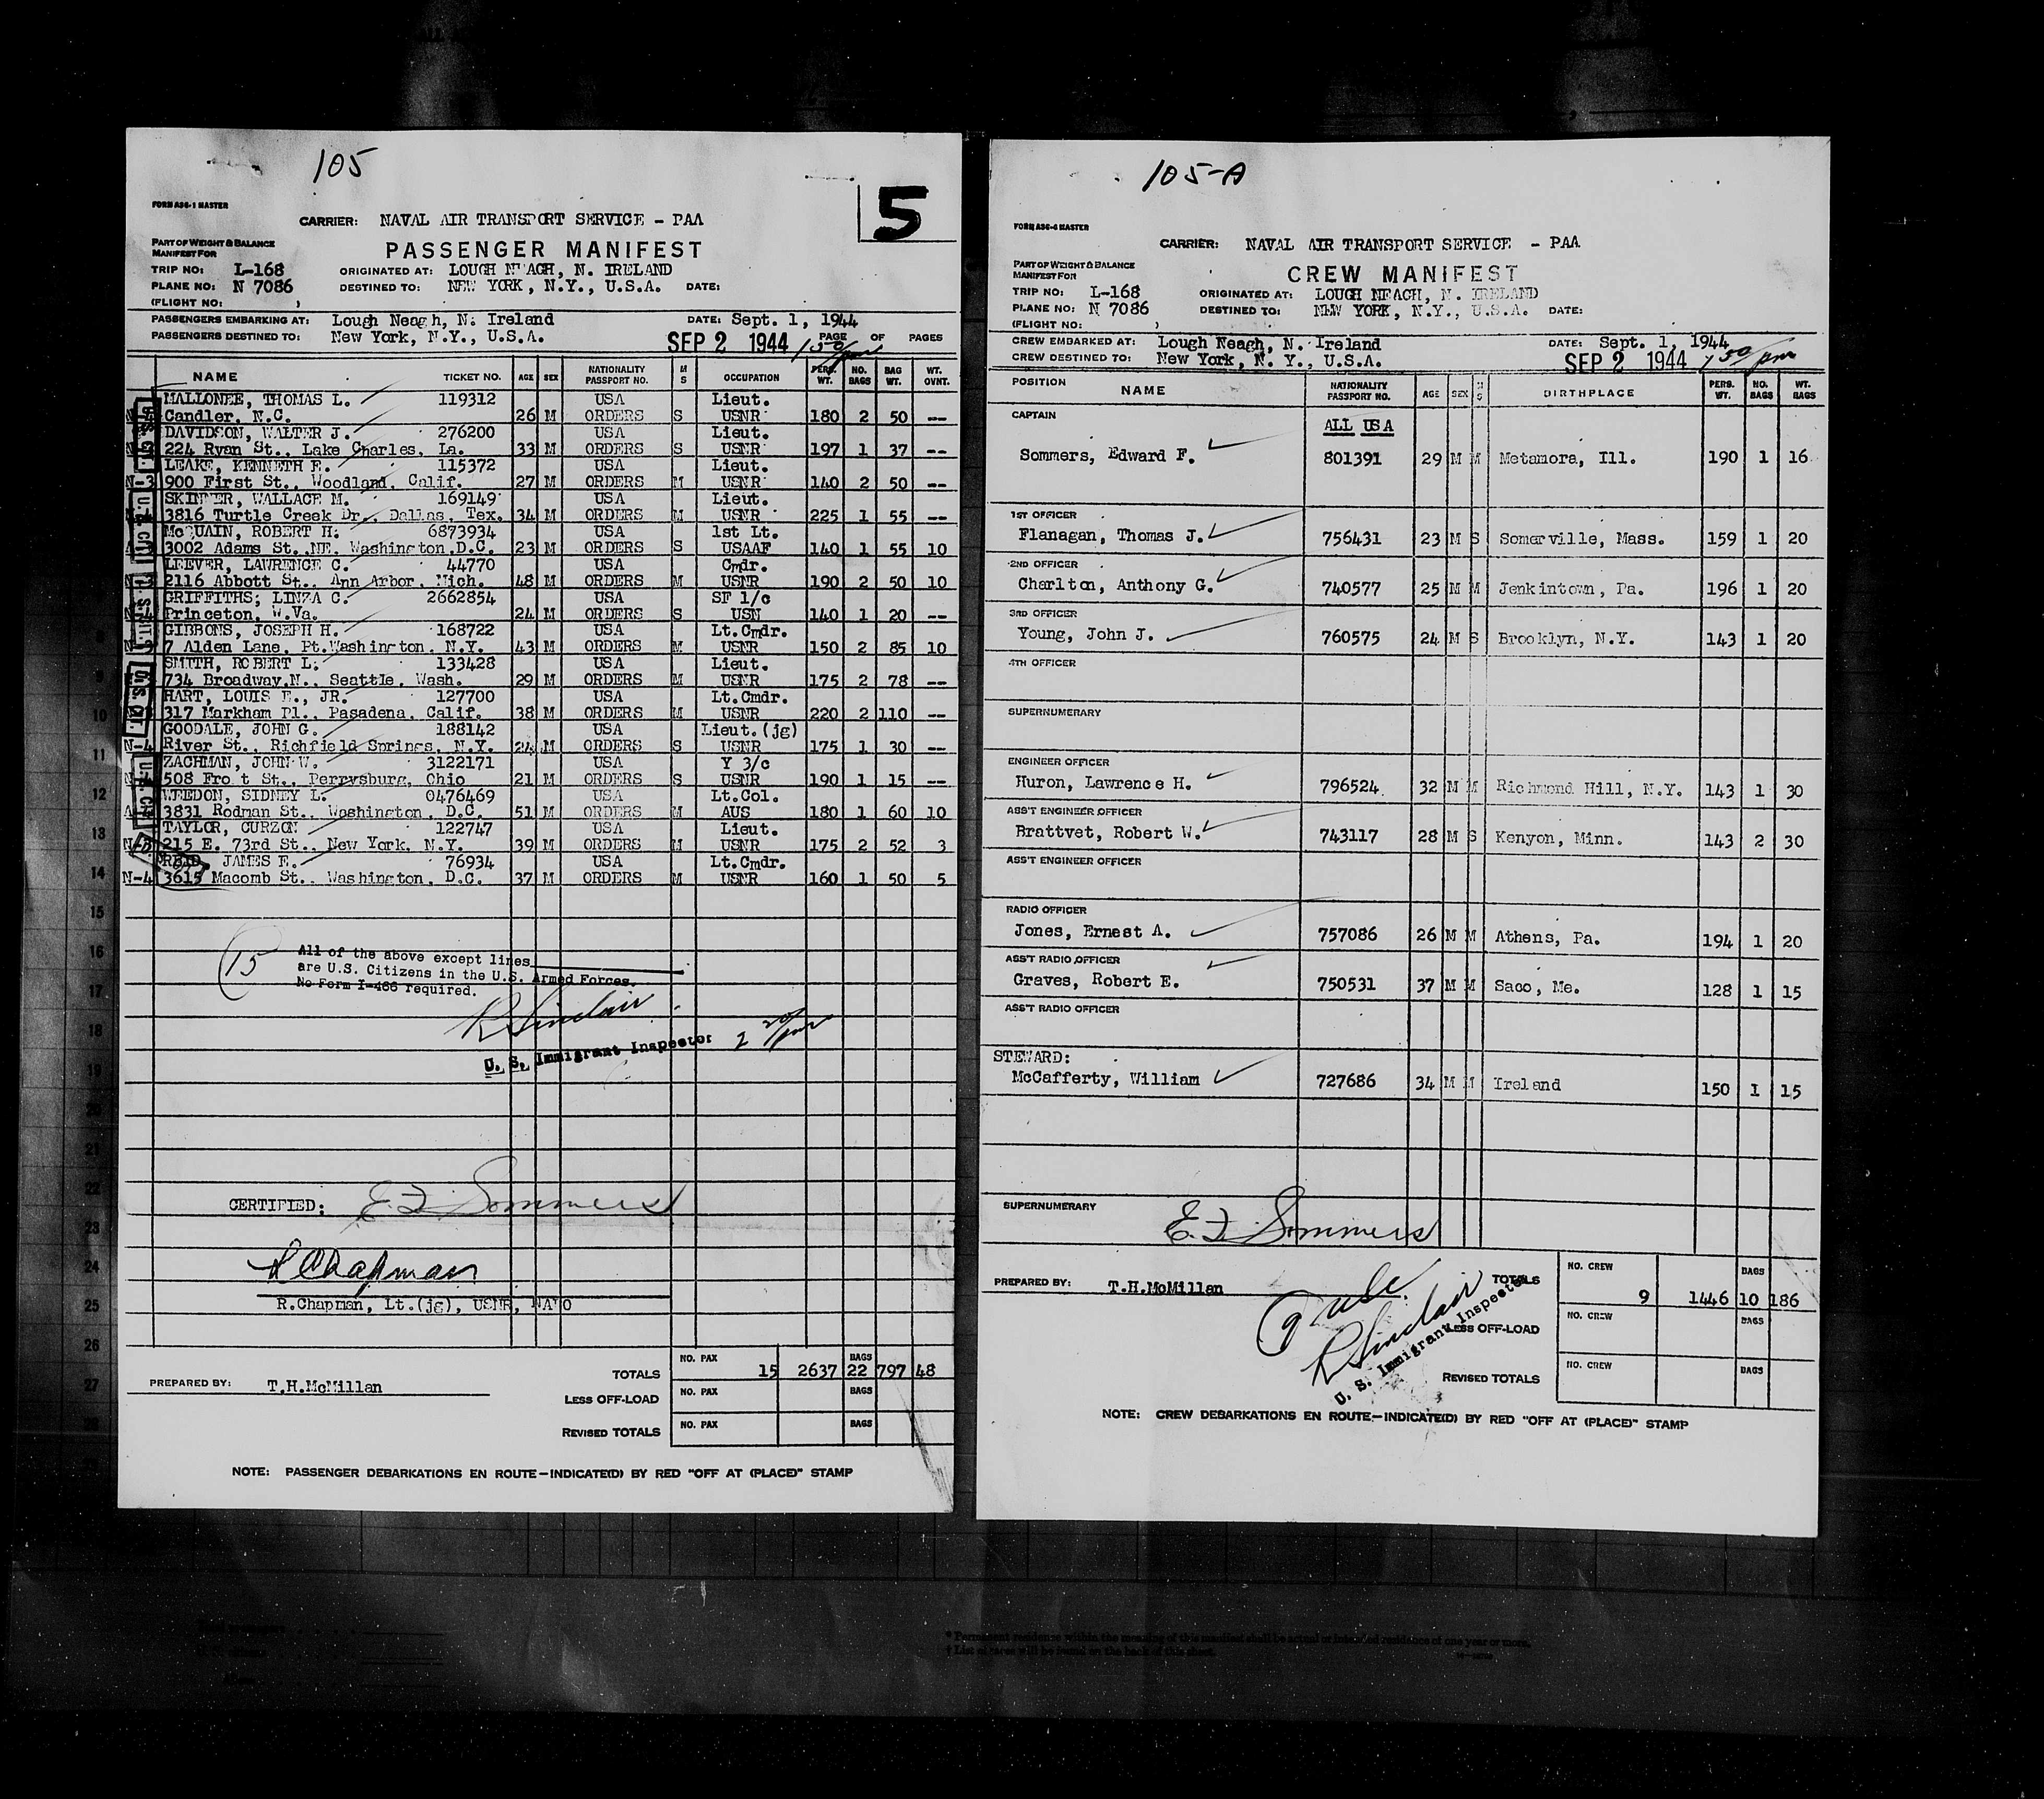 105
5
FORM ASG-1 MASTER
CARRIER: NAVAL AIR TRANSPORT SERVICE - PAA
PART OF WEIGHT & BALANCE
MANIFEST FOR
PASSENGER MANIFEST
TRIP NO: L-168 ORIGINATED AT: LOUGH NEAGH, N. IRELAND
PLANE NO: N 7086 DESTINED TO: NEW YORK, N.Y., U.S.A. DATE:
(FLIGHT NO: )
PASSENGERS EMBARKING AT: Lough Neagh, N. Ireland DATE: Sept. 1, 1944
PASSENGERS DESTINED TO: New York, N.Y., U.S.A. SEP 2 1944 1 50/pm PAGE OF PAGES
NAME TICKET NO. AGE SEX NATIONALITY PASSPORT NO. M S OCCUPATION PERS. WT. NO. BAGS BAG WT. WT. OVNT.
MALLONEE, THOMAS L. 119312 USA Lieut.
Candler, N.C. 26 M ORDERS S USNR 180 2 50 --
DAVIDSON, WALTER J. 276200 USA Lieut.
224 Ryan St., Lake Charles, La. 33 M ORDERS S USNR 197 1 37 --
LEAKE, KENNETH E. 115372 USA Lieut.
N-3 900 First St., Woodland, Calif. 27 M ORDERS M USNR 140 2 50 --
SKINNER, WALLACE M. 169149 USA Lieut.
3816 Turtle Creek Dr., Dallas, Tex. 34 M ORDERS M USNR 225 1 55 --
McQUAIN, ROBERT H. 6873934 USA 1st Lt.
3002 Adams St. NE. Washington,D.C. 23 M ORDERS S USAAF 140 1 55 10
LEEVER, LAWRENCE C. 44770 USA Cmdr.
N-3 2116 Abbott St., Ann Arbor, Mich. 48 M ORDERS M USNR 190 2 50 10
GRIFFITHS; LINZA C. 2662854 USA SF 1/c
N-4 Princeton, W.Va. 24 M ORDERS S USN 140 1 20 --
GIBBONS, JOSEPH H. 168722 USA Lt.Cmdr.
8 7 Alden Lane, Pt.Washington, N.Y. 43 M ORDERS M USNR 150 2 85 10
SMITH, ROBERT L. 133428 USA Lieut.
9 734 Broadway,N., Seattle, Wash. 29 M ORDERS M USNR 175 2 78 --
HART, LOUIS E., JR. 127700 USA Lt.Cmdr.
10 317 Markham Pl., Pasadena, Calif. 38 M ORDERS M USNR 220 2 110 --
GOODALE, JOHN G. 188142 USA Lieut.(jg)
11 N-4 River St., Richfield Springs, N.Y. 24 M ORDERS S USNR 175 1 30 --
ZACHMAN, JOHN W. 3122171 USA Y 3/c
508 Fro t St., Perrysburg, Ohio 21 M ORDERS S USNR 190 1 15 --
12 WEEDON, SIDNEY L. 0476469 USA Lt.Col.
3831 Rodman St., Washington, D.C. 51 M ORDERS M AUS 180 1 60 10
13 TAYLOR, CURZON 122747 USA Lieut.
215 E. 73rd St., New York, N.Y. 39 M ORDERS M USNR 175 2 52 3
REID, JAMES E. 76934 USA Lt.Cmdr.
14 N-4 3615 Macomb St., Washington, D.C. 37 M ORDERS M USNR 160 1 50 5
15
16
15 All of the above except lines
are U.S. Citizens in the U.S. Armed Forces.
17 No Form I-466 required.
R Sinclair
18
U. S. Immigrant Inspector 2 20/pm
19
20
21
22
CERTIFIED: E F Sommers
23
24 R Chapman
25 R.Chapman, Lt.(jg), USNR, NATO
26
TOTALS NO. PAX 15 2637 BAGS 22 797 48
27
PREPARED BY: T.H.McMillan
LESS OFF-LOAD NO. PAX BAGS
REVISED TOTALS NO. PAX BAGS
NOTE: PASSENGER DEBARKATIONS EN ROUTE—INDICATE(D) BY RED "OFF AT (PLACE)" STAMP
105-A
FORM ASG-4 MASTER
CARRIER: NAVAL AIR TRANSPORT SERVICE - PAA
PART OF WEIGHT & BALANCE
MANIFEST FOR
CREW MANIFEST
TRIP NO: L-168 ORIGINATED AT: LOUGH NEAGH, N. IRELAND
PLANE NO: N 7086 DESTINED TO: NEW YORK, N.Y., U.S.A. DATE:
(FLIGHT NO: )
CREW EMBARKED AT: Lough Neagh, N. Ireland DATE: Sept. 1, 1944
CREW DESTINED TO: New York, N. Y., U.S.A. SEP 2 1944 1 50/pm
POSITION NAME NATIONALITY PASSPORT NO. AGE SEX M S BIRTHPLACE PERS. WT. NO. BAGS WT. BAGS
CAPTAIN
ALL USA
Sommers, Edward F. 801391 29 M M Metamora, Ill. 190 1 16
1ST OFFICER
Flanagan, Thomas J. 756431 23 M S Somerville, Mass. 159 1 20
2ND OFFICER
Charlton, Anthony G. 740577 25 M M Jenkintown, Pa. 196 1 20
3RD OFFICER
Young, John J. 760575 24 M S Brooklyn, N.Y. 143 1 20
4TH OFFICER
SUPERNUMERARY
ENGINEER OFFICER
Huron, Lawrence H. 796524 32 M M Richmond Hill, N.Y. 143 1 30
ASS'T ENGINEER OFFICER
Brattvet, Robert W. 743117 28 M S Kenyon, Minn. 143 2 30
ASS'T ENGINEER OFFICER
RADIO OFFICER
Jones, Ernest A. 757086 26 M M Athens, Pa. 194 1 20
ASS'T RADIO OFFICER
Graves, Robert E. 750531 37 M M Saco, Me. 128 1 15
ASS'T RADIO OFFICER
STEWARD:
McCafferty, William 727686 34 M M Ireland 150 1 15
SUPERNUMERARY
E F Sommers
PREPARED BY: T.H.McMillan
TOTALS NO. CREW 9 1446 BAGS 10 186
9
R Sinclair
U. S. Immigrant Inspector
LESS OFF-LOAD NO. CREW BAGS
REVISED TOTALS NO. CREW BAGS
NOTE: CREW DEBARKATIONS EN ROUTE—INDICATE(D) BY RED "OFF AT (PLACE)" STAMP
* Permanent residence within the meaning of this manifest shall be actual or intended residence of one year or more.
† List of races will be found on the back of this sheet.